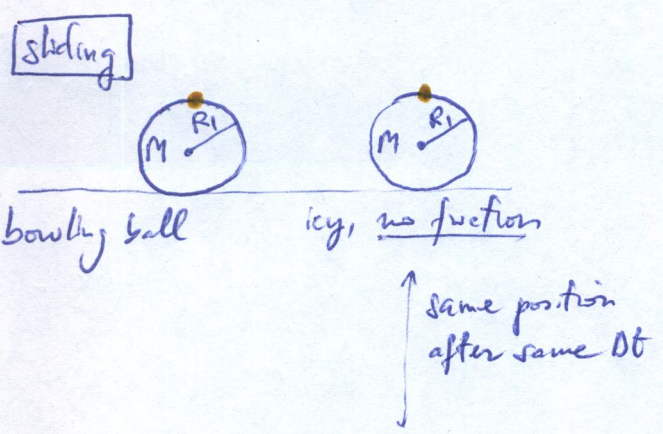 sliding
R1 R1
M M
bowling ball icy, no friction
same position
after same Δt